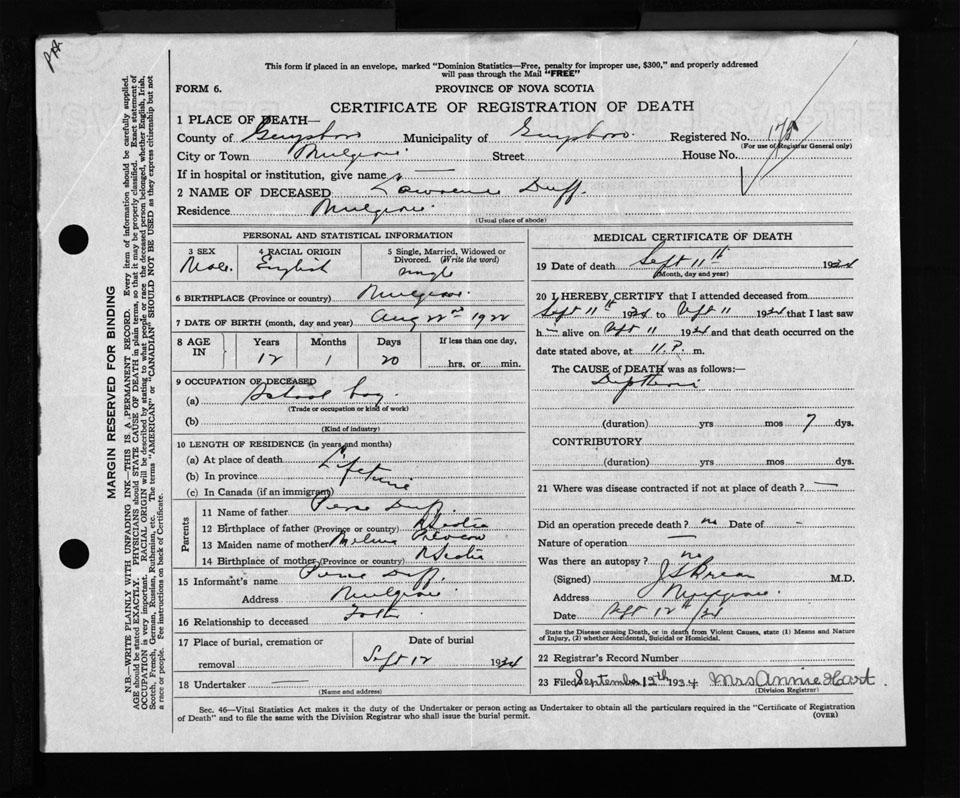 This form if placed in an envelope, marked "Dominion Statistics—Free, penalty for improper use, $300," and properly addressed
will pass through the Mail "FREE"
FORM 6.
PROVINCE OF NOVA SCOTIA
CERTIFICATE OF REGISTRATION OF DEATH
MARGIN RESERVED FOR BINDING
N.B.—WRITE PLAINLY WITH UNFADING INK—THIS IS A PERMANENT RECORD. Every item of information should be carefully supplied.
AGE should be stated EXACTLY. PHYSICIANS should STATE CAUSE OF DEATH in plain terms, so that it may be properly classified. Exact statement of
OCCUPATION is very important. RACIAL ORIGIN will be described by stating to what people or race the deceased person belonged, whether English, Irish,
Scotch, French, German, Russian, Ruthenian, etc. The terms "AMERICAN" or "CANADIAN" SHOULD NOT BE USED as they express citizenship but not
a race or people. See instructions on back of Certificate.
1 PLACE OF DEATH—
County of Guysboro Municipality of Guysboro. Registered No.
(For use of Registrar General only)
City or Town Mulgrave. Street House No.
If in hospital or institution, give name —
2 NAME OF DECEASED Lawrence Duff.
Residence Mulgrave.
(Usual place of abode)
PERSONAL AND STATISTICAL INFORMATION
3 SEX Male.
4 RACIAL ORIGIN English
5 Single, Married, Widowed or Divorced. (Write the word) single
6 BIRTHPLACE (Province or country) Mulgrave.
7 DATE OF BIRTH (month, day and year) Aug 22nd 1922
8 AGE IN Years Months Days If less than one day,
12 1 20 hrs. or min.
9 OCCUPATION OF DECEASED
(a) School boy.
(Trade or occupation or kind of work)
(b)
(Kind of industry)
10 LENGTH OF RESIDENCE (in years and months)
(a) At place of death Lifetime
(b) In province
(c) In Canada (if an immigrant)
Parents
11 Name of father Duff.
12 Birthplace of father (Province or country) N Scotia
13 Maiden name of mother
14 Birthplace of mother (Province or country) N Scotia
15 Informant's name Duff.
Address Mulgrave
16 Relationship to deceased Father
17 Place of burial, cremation or removal
Date of burial
Sept 12 1934
18 Undertaker —
(Name and address)
MEDICAL CERTIFICATE OF DEATH
19 Date of death Sept 11th 1934
(Month, day and year)
20 I HEREBY CERTIFY that I attended deceased from
Sept 11th 1934 to Sept 11 1934 that I last saw
h— alive on Sept 11 1934 and that death occurred on
the date stated above, at 11.P. m.
The CAUSE of DEATH was as follows:—
(duration) yrs mos 7 dys.
CONTRIBUTORY
(duration) yrs. mos. dys.
21 Where was disease contracted if not at place of death? —
Did an operation precede death? no Date of -
Nature of operation —
Was there an autopsy? no
(Signed) M.D.
Address Mulgrave.
Date Sept 12th/34
State the Disease causing Death, or in death from Violent Causes, state (1) Means and Nature
of Injury, (2) whether Accidental, Suicidal or Homicidal.
22 Registrar's Record Number
23 Filed September 12th 1934 Mrs Annie Hart.
(Division Registrar)
Sec. 46—Vital Statistics Act makes it the duty of the Undertaker or person acting as Undertaker to obtain all the particulars required in the "Certificate of Registration
of Death" and to file the same with the Division Registrar who shall issue the burial permit.
(OVER)